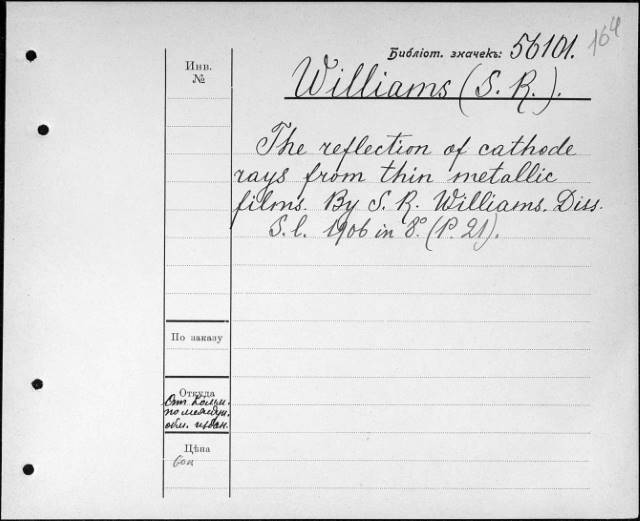 164
Библіот. значекъ: 56101.
Инв.
№
Williams (S. R.).
The reflection of cathode
rays from thin metallic
films. By S. R. Williams. Diss.
S. l. 1906 in 8° (P. 21).
По заказу
Откуда
по
обм.
Цѣна